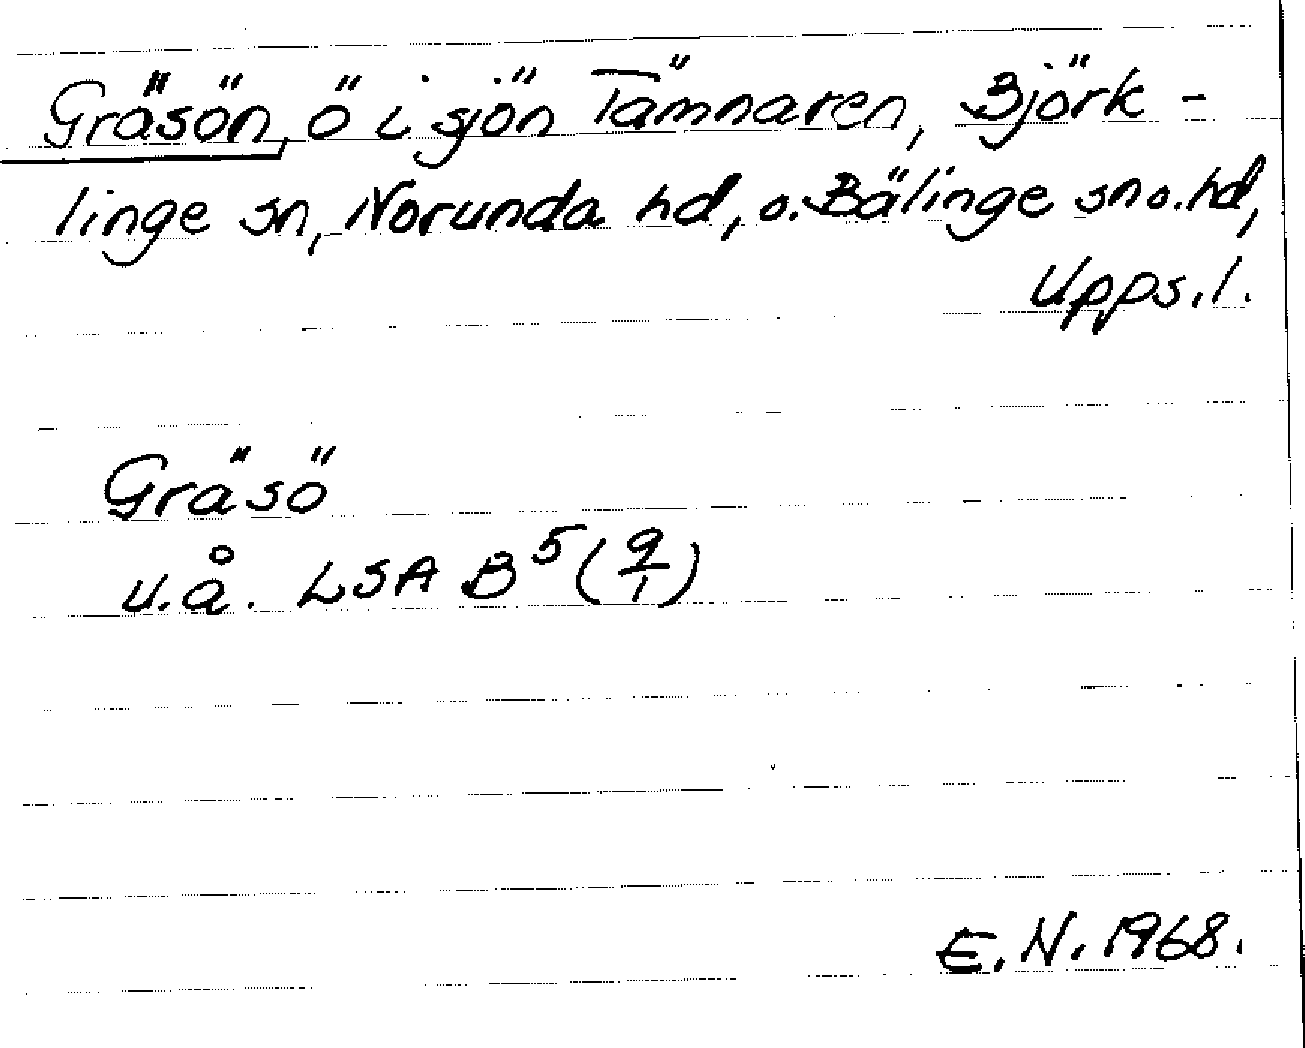 Gräsön, ö i sjön Tämnaren, Björk-
linge sn, Norunda hd, o. Bälinge sn o. hd,
Upps. l.
Gräsö
u.å. LSA B⁵ (9/1)
E. N. 1968.